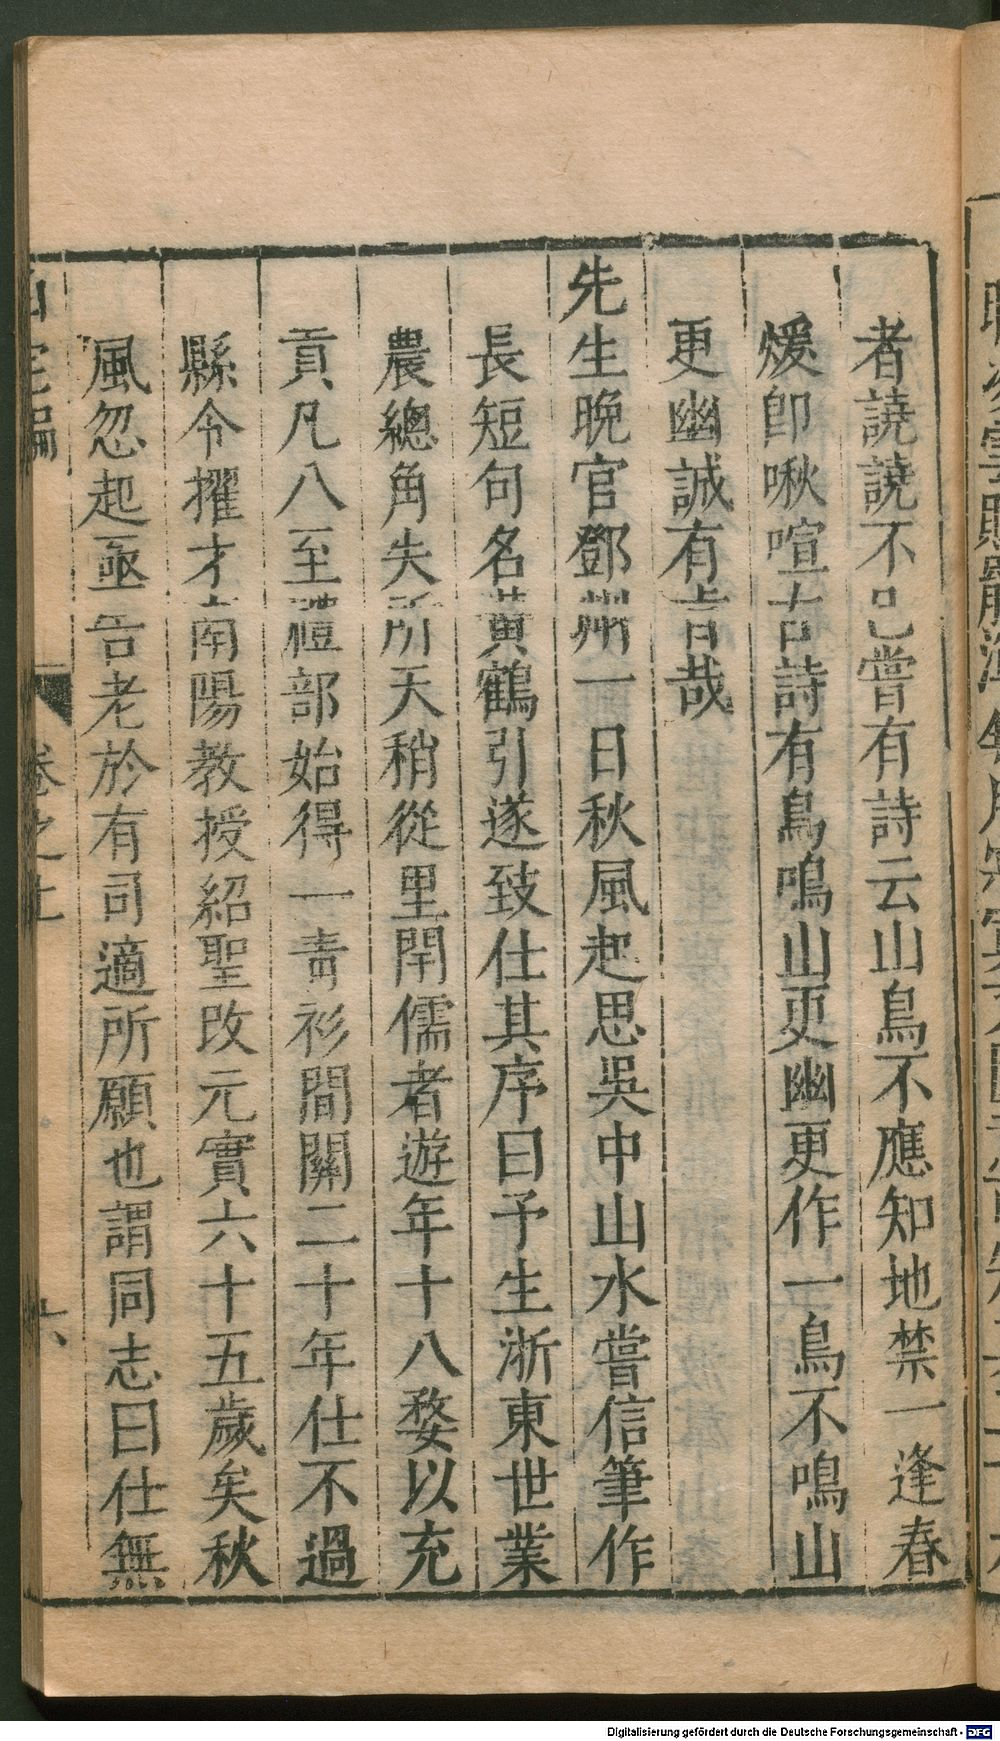 者譊譊不已嘗有詩云山鳥不應知地禁一逢春
煖卽啾喧古詩有鳥鳴山更幽更作一鳥不鳴山
更幽誠有㫖哉
先生晩官鄧州一日秋風起思吳中山水嘗信筆作
長短句名黃鶴引遂致仕其序曰予生浙東世業
農總角失所天稍從里閈儒者遊年十八婺以充
貢凡八至禮部始得一靑衫間關二十年仕不過
縣令擢才南陽教授紹聖改元實六十五歲矣秋
風忽起亟告老於有司適所願也謂同志曰仕無
泊宅編
卷之上
六
Digitalisierung gefördert durch die Deutsche Forschungsgemeinschaft - DFG